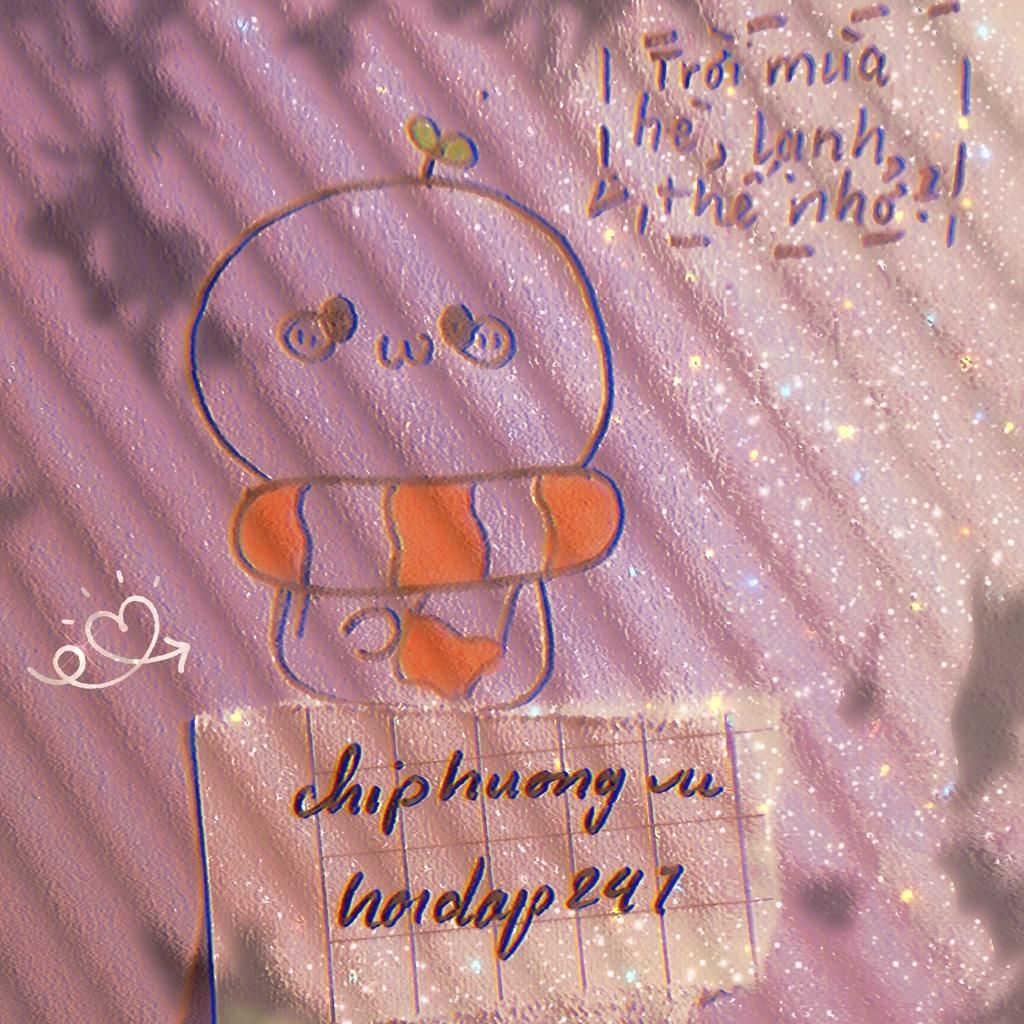 Trời mùa
hè, lạnh
thế nhở?
chiphuong vu
hoidap247